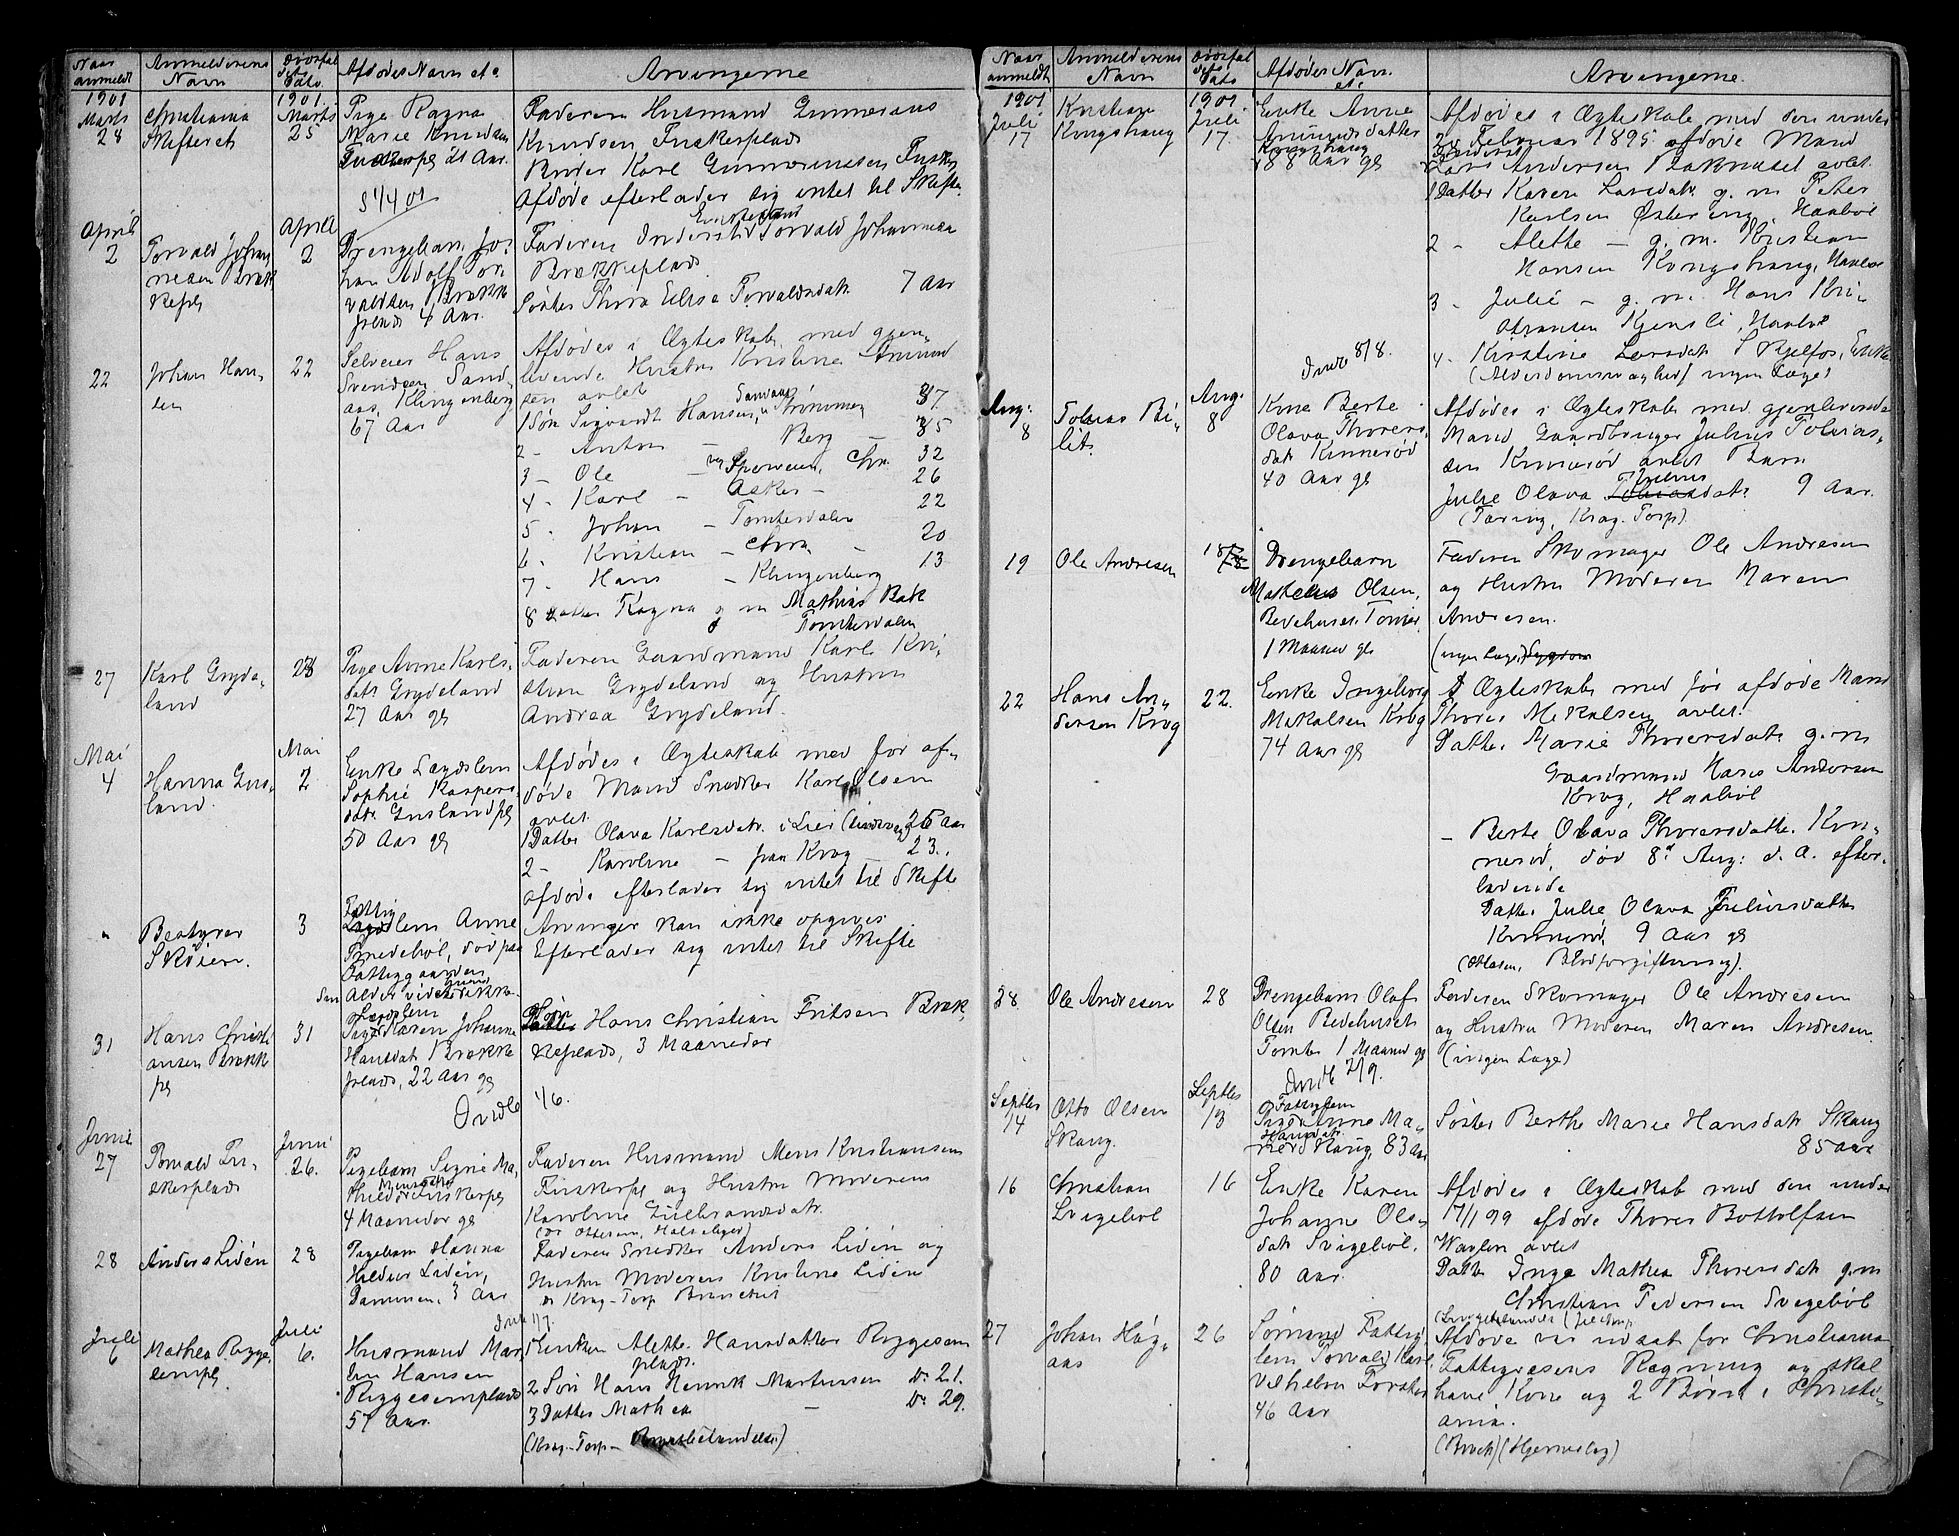 Naar anmeldt
Anmelderens Navn
Dødsfaldets Dato
Afdødes Navn etc
Arvingerne
1901
Marts
28
Christiania
Skifteret
1901
Marts
25
Pige Ragna
Marie Knudsen
Fuskerpl 21 Aar.
Faderen Husmand Gunnerius
Knudsen Fuskerplads
Broder Karl Gunneriusen Fusker
Afdøde efterlader sig intet til Skifte
April
2
Torvald Johan
nesen Bræk
kepl
April
2
Drengebarn Jo-
han Adolf Tor
valdsen Brække
plads 4 Aar.
Faderen Inderst Torvald Johannesen
Brækkeplads
Søster Thora Elise Torvaldsdatr 7 Aar
22
Johan Han-
sen
22
Selveier Hans
Svendsen Sand-
aas, Klingenberg
67 Aar
Afdødes i Ægteskab med gjen-
levende Hustru Kristine Amund
sen avlet
1 Søn Sigvardt Hansen, Strømmen 37
2 - Anton - Berg - 35
3 - Ole - Sporveien, Chr. 32
4 - Karl - Asker - 26
5 - Johan - Tomterdalen 22
6 - Kristian - Chra - 20
7 - Hans - Klingenberg 13
8 Datter Ragna g m Mathias Bak
Tomterdalen
27
Karl Gryde-
land
Pige Anne Karls-
datr Grydeland
27 Aar gl
Faderen Gaardmand Karl Kri-
stian Grydeland og Hustru
Andrea Grydeland.
Mai
4
Hanna Gus-
land.
Mai
2
Enke Lægdslem
Sophie Kaspers
datr. Guslandpl
50 Aar gl
Afdødes i Ægteskab med før af-
døde Mand Snedker Karl Olsen
avlet
1 Datter Olava Karlsdatr. i Lier 26 Aar
2 - Karoline - fra Krog - 23.
Afdøde efterlader sig intet til Skifte
"
Bestyrer
Skøien.
3
Fattig
lem Anne
Smedebøl, død paa
Fattiggaarden
Alder vides ikke
Arvinger kan ikke opgives
Efterlader sig intet til Skifte
31
Hans Christi
ansen Brække
pl
31
Lægdslem
Pige Karen Johanne
Hansdatr Brække
plads, 22 Aar gl
Indb 4/6.
Søn Hans Christian Fritsen Bræk
keplads, 3 Maaneder
Juni
27
Torvald Fu-
skerplads
Juni
26.
Pigebarn Signe Ma-
thilde Fuskerpl
4 Maaneder gl
Faderen Husmand Mens Kristiansen
Fuskerpl og Hustru Moderen
Karoline Gulbrandsdatr.
28
Anders Lidén
28
Pigebarn Hanna
Hildur Lidén,
Dammen, 3 Aar
Faderen Snedker Anders Lidén og
Hustru Moderen Kristine Lidén
Dr Krag-Torp
Juli
6
Mathea Rygge
senpl
Juli
6.
Husmand Mar-
tin Hansen
Ryggesenplads
57 Aar.
1 Enken Alette Hansdatter Ryggesen
plads.
2 Søn Hans Henrik Martinsen Do 21.
3 Datter Mathea - Do 29.
(Krag-Torp-
Naar anmeldt
Anmelderens Navn
Dødsfaldets Dato
Afdødes Navn etc
Arvingerne.
1901
Juli
17
Kristian
Kongshaug
1901
Juli
17.
Enke Anne
Amundsdatter
Kongshaug
88 Aar gl
Afdødes i Ægteskab med den under
Februar 1895 afdøde Mand
Lars Andersen Bakhuset avlet
1 Datter Karen Larsdatr g. m Peter
Karlsen Østereng, Haabøl
2 - Alette - g. m. Kristian
Hansen Kongshaug, Haabøl
3 - Julie - g. m. Hans Kri-
stiansen Kjensli, Haabøl
4 - Kirstine Larsdatr Skjelfos, Enke
(Alderdomssvaghed) ingen Læge)
Indb 8/8.
Aug:
8
Tobias Bi-
lit.
Aug.
8
Kone Berte
Olava Thorers-
datr Kinnerød
40 Aar gl
Afdødes i Ægteskab med gjenlevende
Mand Gaardbruger Julius Tobias-
sen Kinnerød avlet Barn
Julius
Julie Olava Tobiasdatr 9 Aar.
(Tæring, Krag-Torp)
19
Ole Andresen
18
Drengebarn
Olsen,
Bedehuset Tomter
1 Maaned gl
Faderen Skomager Ole Andresen
og Hustru Moderen Maren
Andresen.
(ingen Læge)
22
Hans An-
dersen Krog
22.
Enke Ingeborg
Mikalsen Krog
74 Aar gl
I Ægteskab med før afdøde Mand
Thorer Mikalsen avlet.
Datter Marie Thorersdatr g. m
Gaardmand Hans Andersen
Krog, Haabøl
- Berte Olava Thorersdatter Kin-
nerød, død 8d Aug: d. A. efter-
ladende
Datter Julie Olava Juliusdatter
Kinnerød, 9 Aar gl
(Ottesen, Blodforgiftning).
28
Ole Andresen
28
Drengebarn Olaf
Olsen Bedehuset
Tomter 1 Maaned gl
Indb 2/9.
Faderen Skomager Ole Andresen
og Hustru Moderen Maren Andresen.
(ingen Læge)
Septbr
14
Otto Olsen
Skaug.
Septbr
13
Fattiglem
Pige Anne Ma-
Hansdatr
rie Skaug, 83 Aar
Søster Berthe Marie Hansdatr Skaug
85 Aar
16
Christian
Svigebøl
16
Enke Karen
Johanne Ols-
datr Svigebøl.
80 Aar.
Afdødes i Ægteskab med den under
17/1 99 afdøde Thorer Bottolfsen
avlet
Datter Inga Mathea Thorersdatr g.m
Christian Pedersen Svigebøl
27
Johan Høg-
aas
26
Sømand Fattig
lem Torvald Karl
Vilhelm Forsker
46 Aar
Afdøde var udsat for Christiania
Fattigvæsens Regning og skal
have Kone og 2 Børn i Christi-
ania.
(Brock) (Hjerneslag)